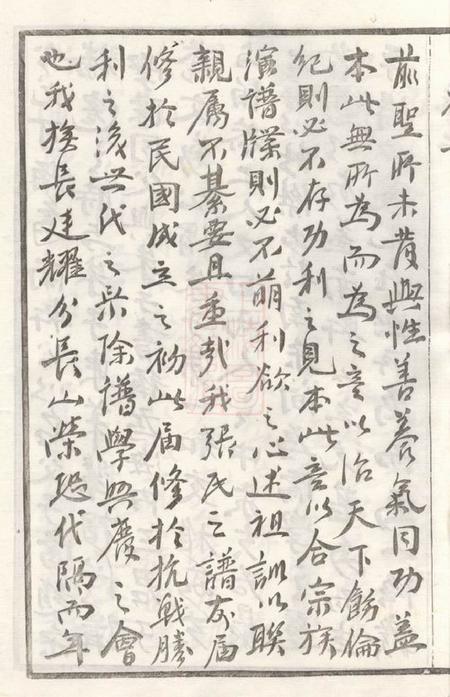 前聖所未發與性善養氣同功蓋
本此無所為而為之意以治天下飭倫
紀則必不存功利之見本此意以合宗族
演譜牒則必不萌利欲之心述祖訓以聯
親屬不綦要且重哉我張氏之譜前屆
修於民國成立之初此屆修於抗戰勝
利之後世代之榮除譜學與廢之會
也我族長廷耀分長山榮恐代隔而年